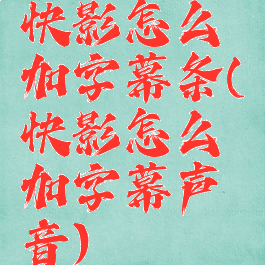 快影怎么
加字幕条(
快影怎么
加字幕声
音)